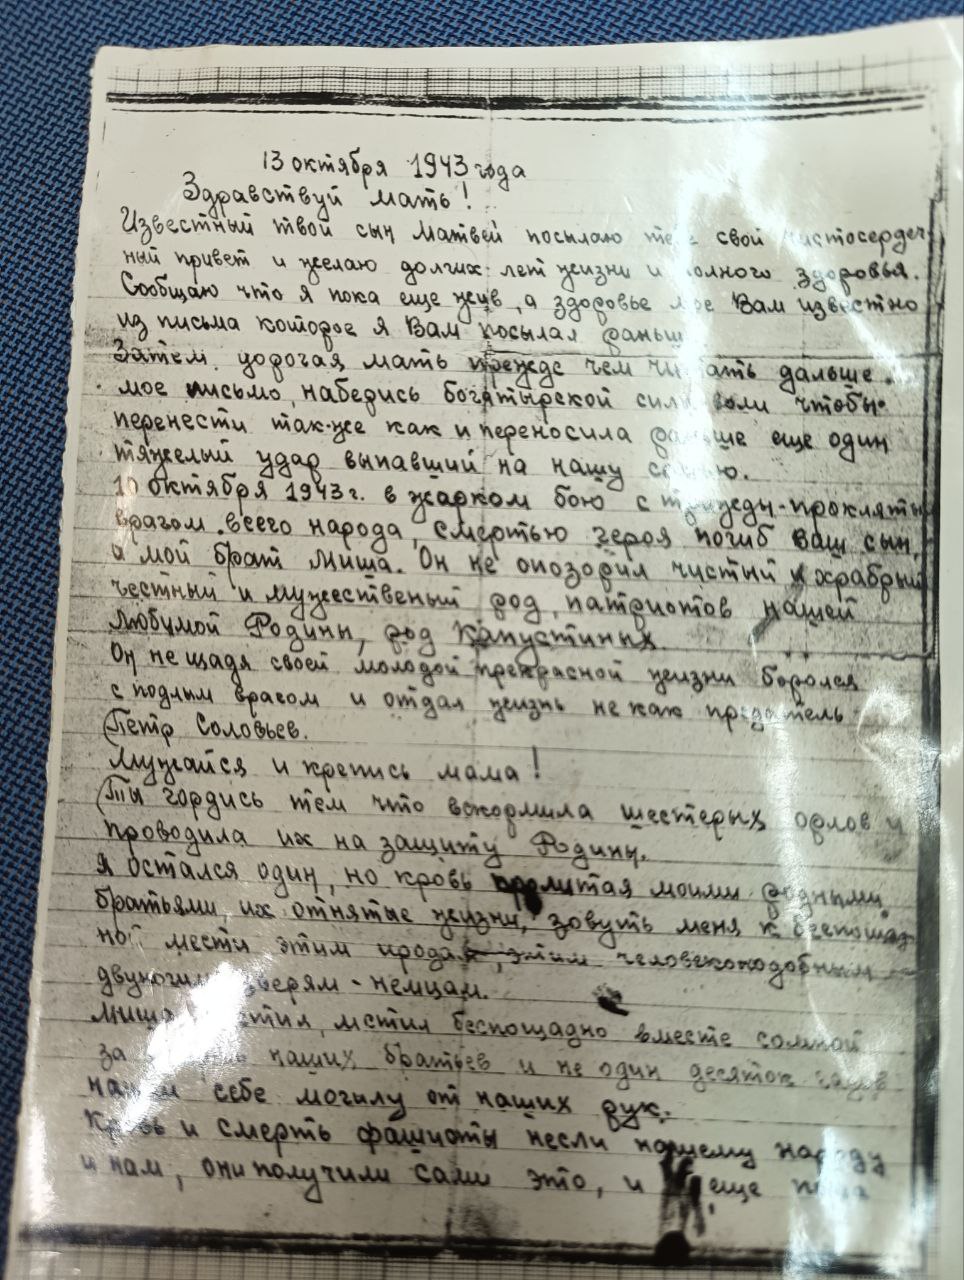 13 октября 1943 года
Здравствуй мать!
Известный твой сын Матвей посылаю тебе свой чистосердеч
ный привет и желаю долгих лет жизни и полного здоровья.
Сообщаю что я пока еще жив, а здоровье мое Вам известно
из письма которое я Вам посылал раньше
Затем дорогая мать прежде чем читать дальше
мое письмо, наберись богатырской силы воли чтобы
перенести так-же как и переносила раньше еще один
тяжелый удар выпавший на нашу семью.
10 октября 1943 г. в жарком бою с трижды-проклятым
врагом всего народа, смертью героя погиб ваш сын,
а мой брат Миша. Он не опозорил чистый и храбрый
честный и мужественый род, патриотов нашей
любимой Родины, род Капустиных.
Он не щадя своей молодой прекрасной жизни боролся
с подлым врагом и отдал жизнь не как предатель
Петр Соловьев.
Мужайся и крепись мама!
Ты гордись тем что вскормила шестерых орлов и
проводила их на защиту Родины.
Я остался один, но кровь пролитая моими родными
братьями, их отнятые жизни, зовуть меня к беспощад
ной мести этим этим человекоподобным
двуногим зверям - немцам.
Миша мстил, мстил беспощадно вместе сомной
за наших братьев и не один десяток гадов
нашли себе могилу от наших рук.
Кровь и смерть фашисты несли нашему народу
и нам, они получили сами это, и еще